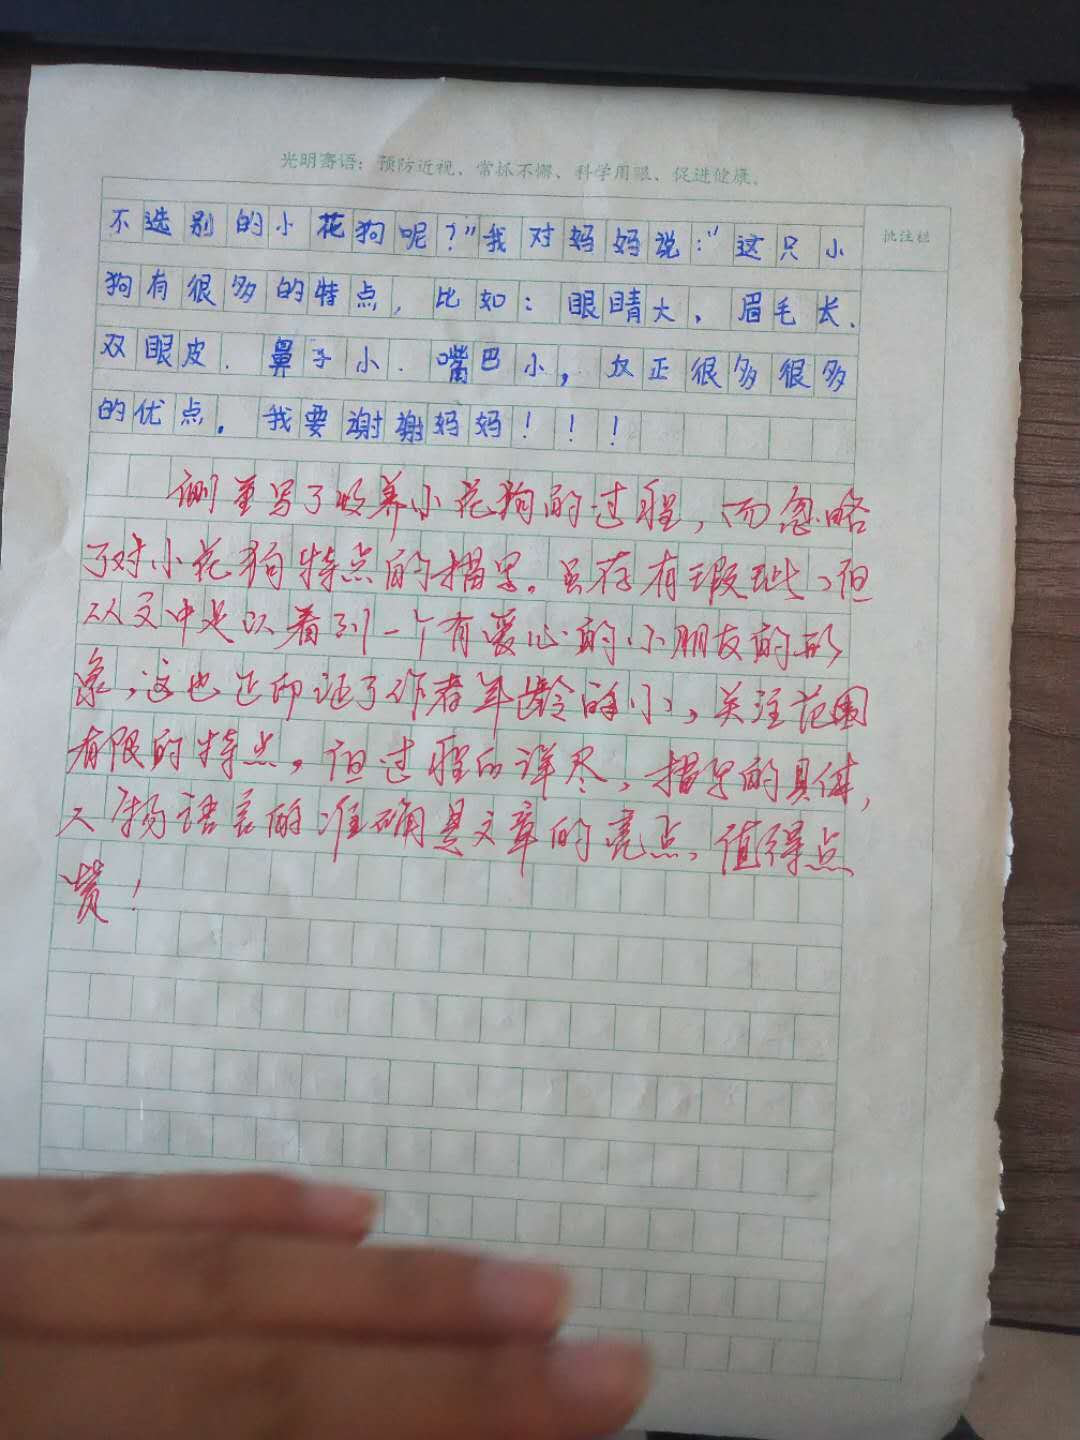 光明寄语：预防近视、常抓不懈、科学用眼、促进健康。
批注栏
不选别的小花狗呢？”我对妈妈说：“这只小
狗有很多的特点，比如：眼睛大、眉毛长、
双眼皮、鼻子小、嘴巴小，反正很多很多
的优点。我要谢谢妈妈！！！
侧重写了收养小花狗的过程，而忽略
了对小花狗特点的描写。虽存有瑕玼，但
从文中足以看到一个有爱心的小朋友的形
象，这也正印证了作者年龄的小，关注范围
有限的特点，但过程的详尽，描写的具体，
人物语言的准确是文章的亮点，值得点
赞！